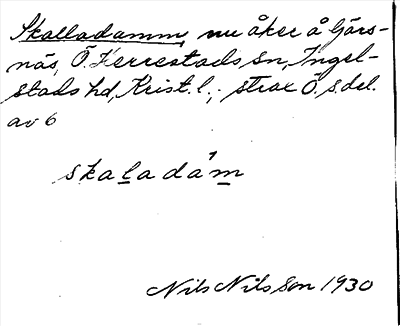 Skalladamm, nu åker å Gärs-
näs, Ö. Herrestads sn, Ingel-
stads hd, Krist. l.; strax Ö. s. del.
av 6
skaladam
Nils Nilsson 1930